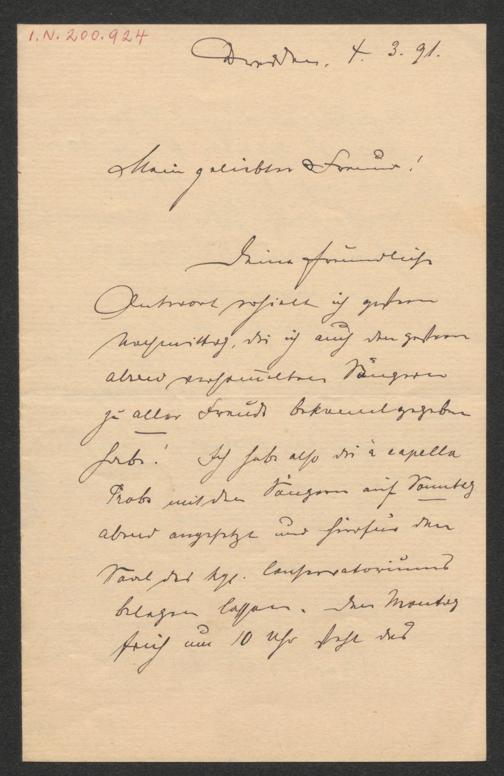 I.N. 200.924
Dresden, 4. 3. 91.
Mein geliebter Freund!
Deine freundliche
Antwort erhielt ich gestern
Nachmittag, die ich auch den gestern
abend versammelten Sängern
zu aller Freude bekanntgegeben
habe! Ich habe also die à capella
Probe mit den Sängern auf Sonntag
abend angesetzt und hierfür den
Saal des kgl. Conservatoriums
belegen lassen. Den Montag
früh um 10 Uhr steht das